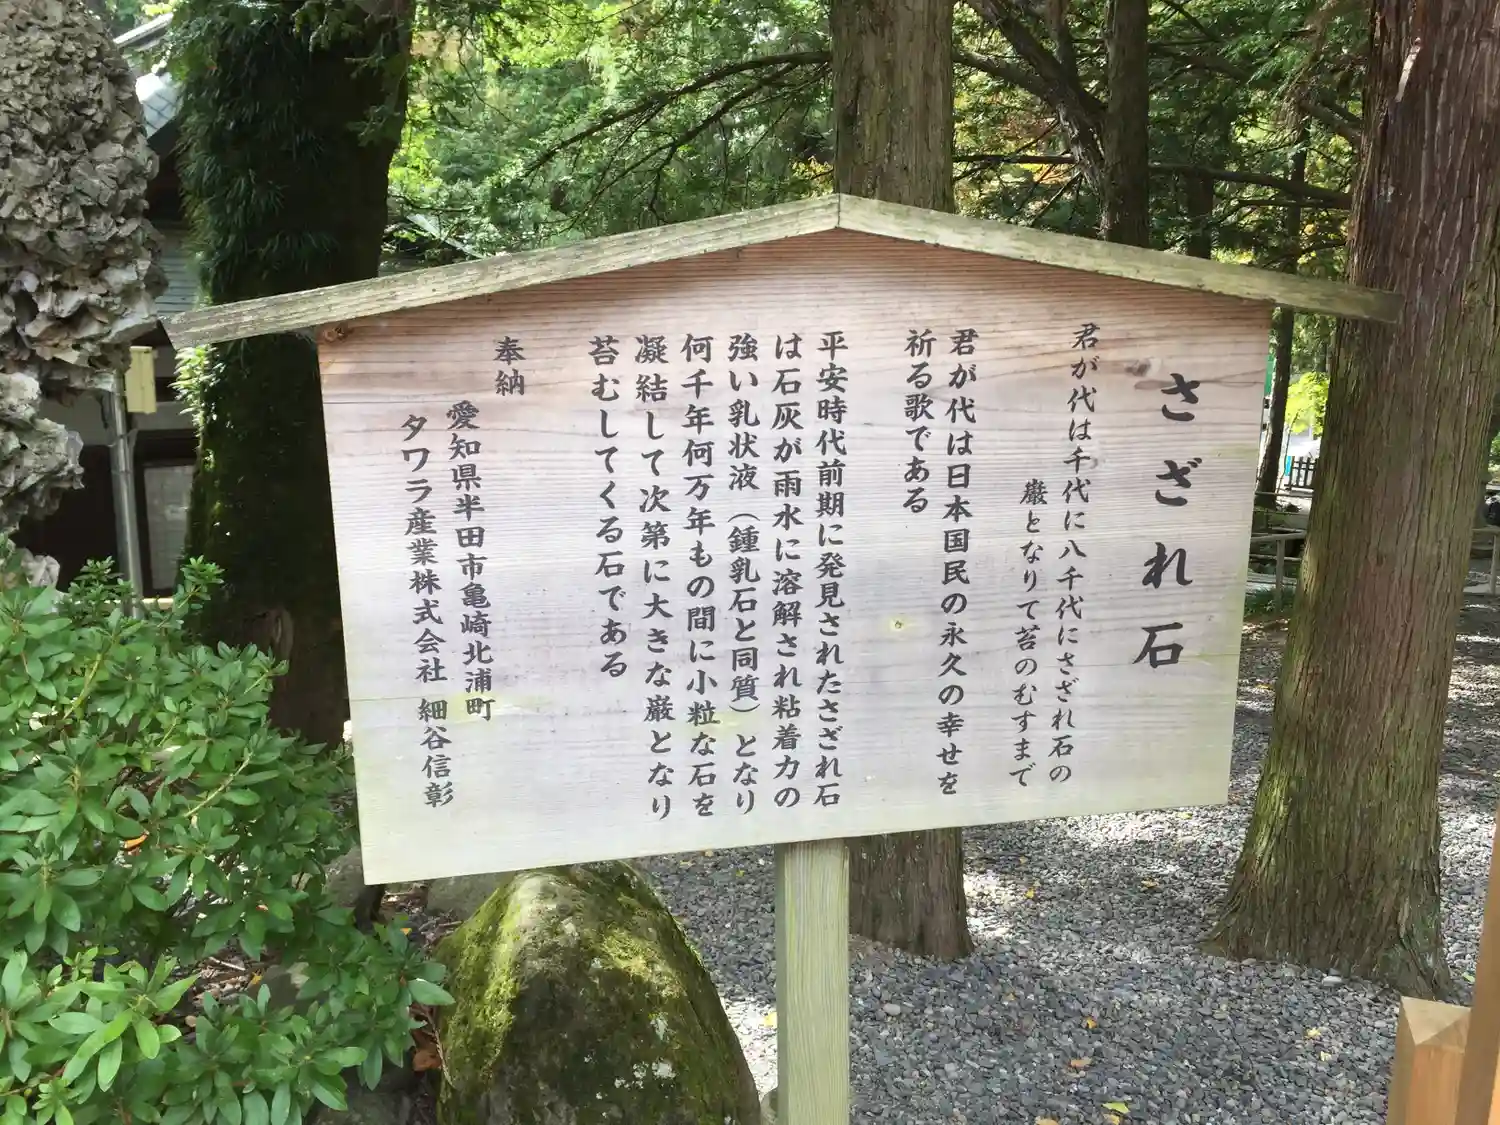 さざれ石
君が代は千代に八千代にさざれ石の
巌となりて苔のむすまで
君が代は日本国民の永久の幸せを
祈る歌である
平安時代前期に発見されたさざれ石
は石灰が雨水に溶解され粘着力の
強い乳状液（鍾乳石と同質）となり
何千年何万年もの間に小粒な石を
凝結して次第に大きな巌となり
苔むしてくる石である
奉納
愛知県半田市亀崎北浦町
タワラ産業株式会社 細谷信彰